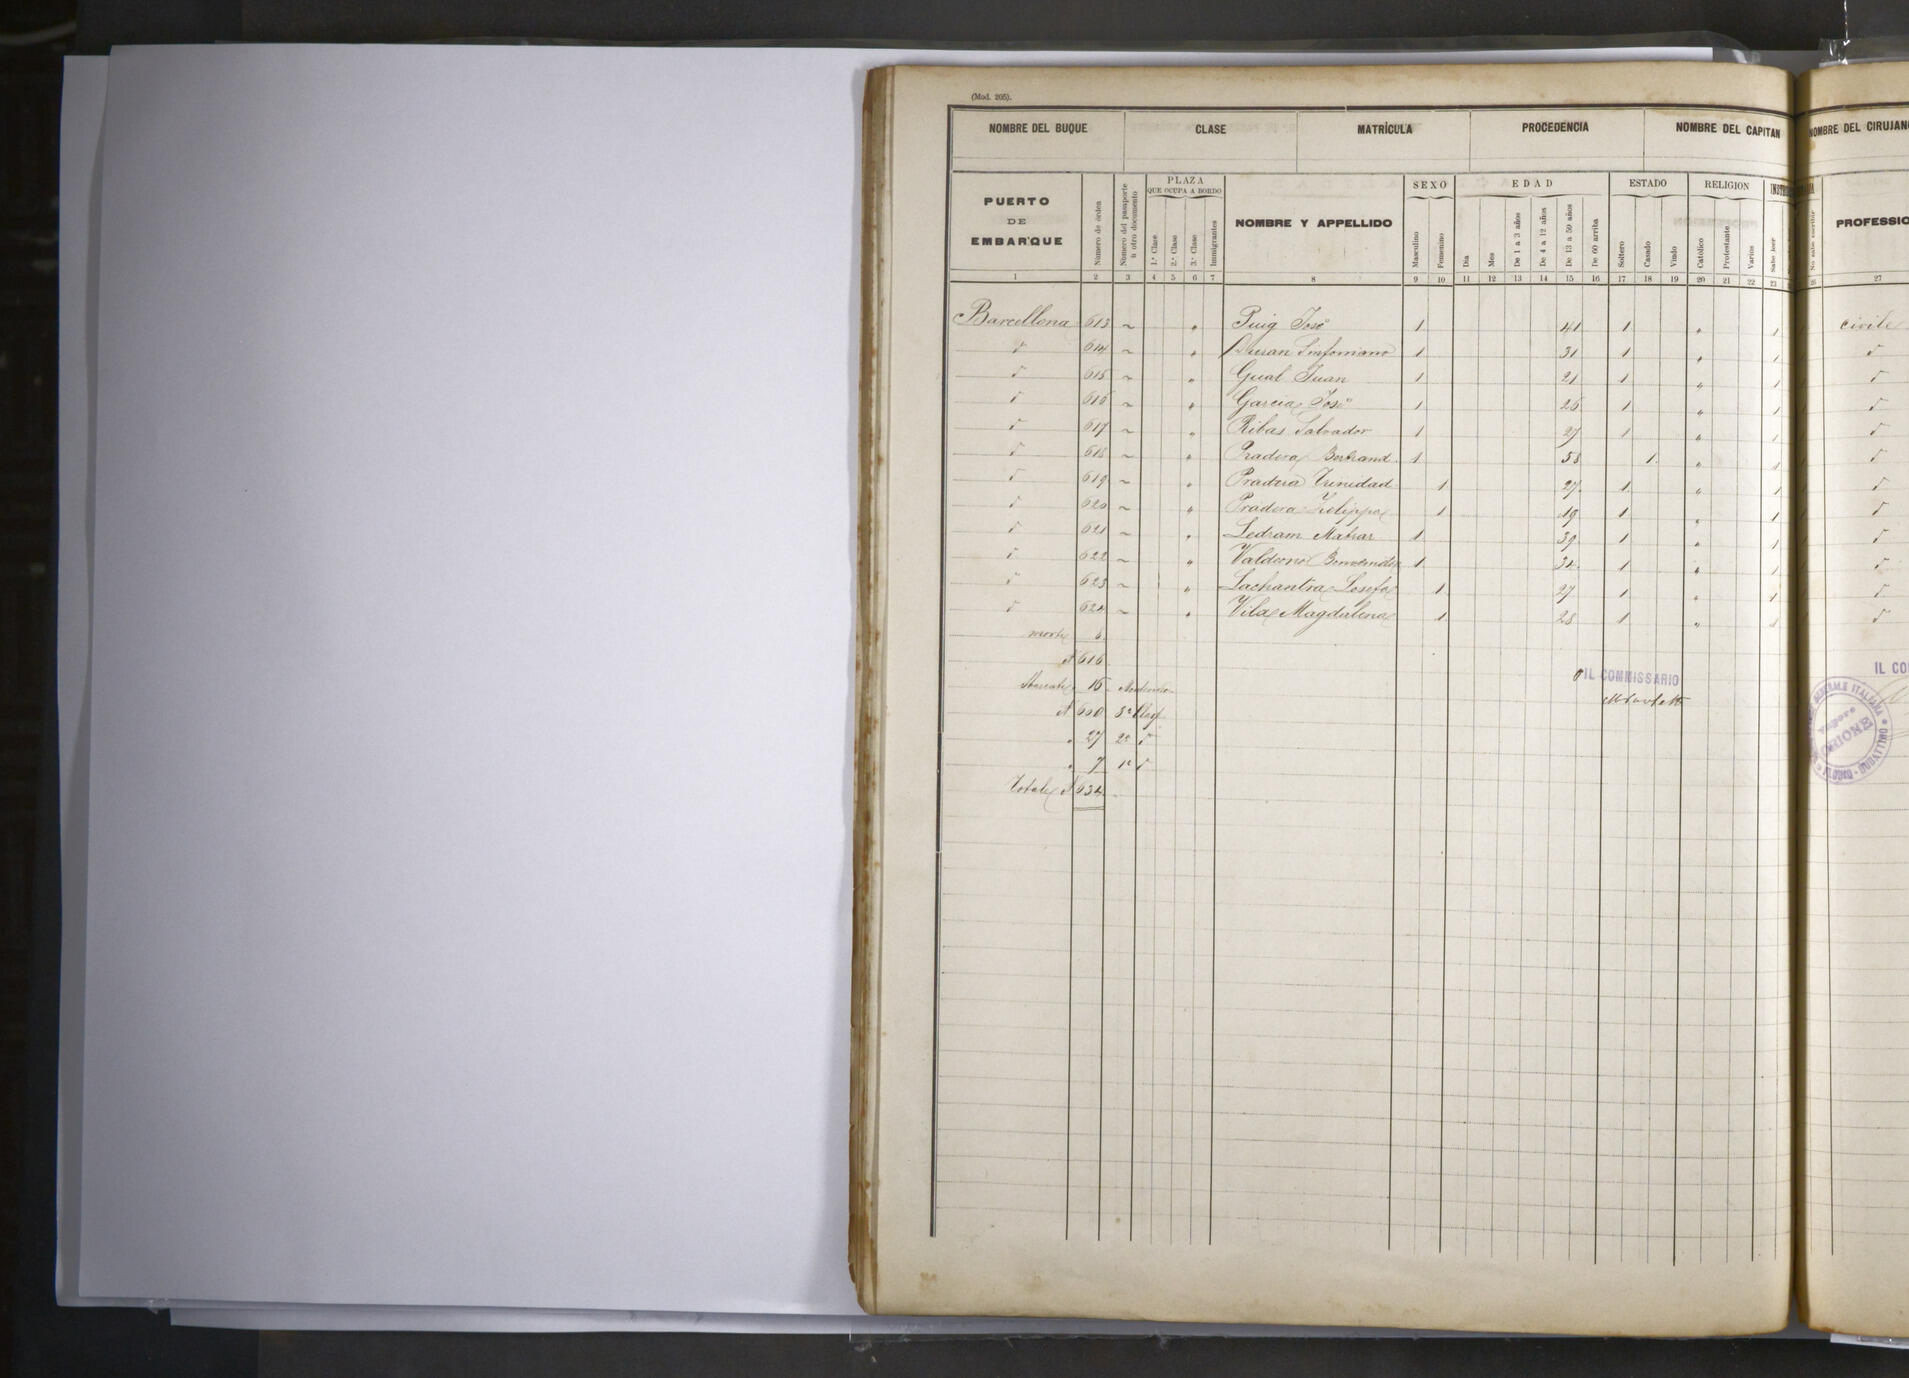 (Mod. 205).
NOMBRE DEL BUQUE CLASE MATRÍCULA PROCEDENCIA NOMBRE DEL CAPITAN NOMBRE DEL CIRUJANO
PUERTO DE EMBARQUE Número de órden Número del pasaporte ú otro documento PLAZA QUE OCUPA A BORDO 1.ª Clase 2.ª Clase 3.ª Clase Inmigrantes NOMBRE Y APPELLIDO SEXO Masculino Femenino EDAD Dia Mes De 1 a 3 años De 4 a 12 años De 13 a 59 años De 60 arriba ESTADO Soltero Casado Viudo RELIGION Católico Protestante Varios Sabe leer No sabe escribir PROFESSIO
1 2 3 4 5 6 7 8 9 10 11 12 13 14 15 16 17 18 19 20 21 22 23 26 27
Barcellona 613 ~ " Puig José 1 41 1 " 1 civile
d 614 ~ " Duran Sinforiano 1 31 1 " 1 d
d 615 ~ " Gual Juan 1 21 1 " 1 d
d 616 ~ " Garcia José 1 26 1 " 1 d
d 617 ~ " Ribas Salvador 1 27 1 " 1 d
d 618 ~ " Pradera Bertrand 1 58 1 " 1 d
d 619 ~ " Pradera Trinidad 1 27 1 " 1 d
d 620 ~ " Pradera Felippa 1 19 1 " 1 d
d 621 ~ " Ledram 1 39 1 " 1 d
d 622 ~ " 1 34 1 " 1 d
d 623 ~ " 1 27 1 " 1 d
d 624 ~ " Vila Magdalena 1 28 1 " 1 d
616
IL COMMISSARIO
IL CO
16
N 600 3ª Clas
" 27 2ª d
" 7 1ª d
Totale N 634
GENERALE ITALIANA
Vapore
ORIONE
FLORIO - RUBATTINO